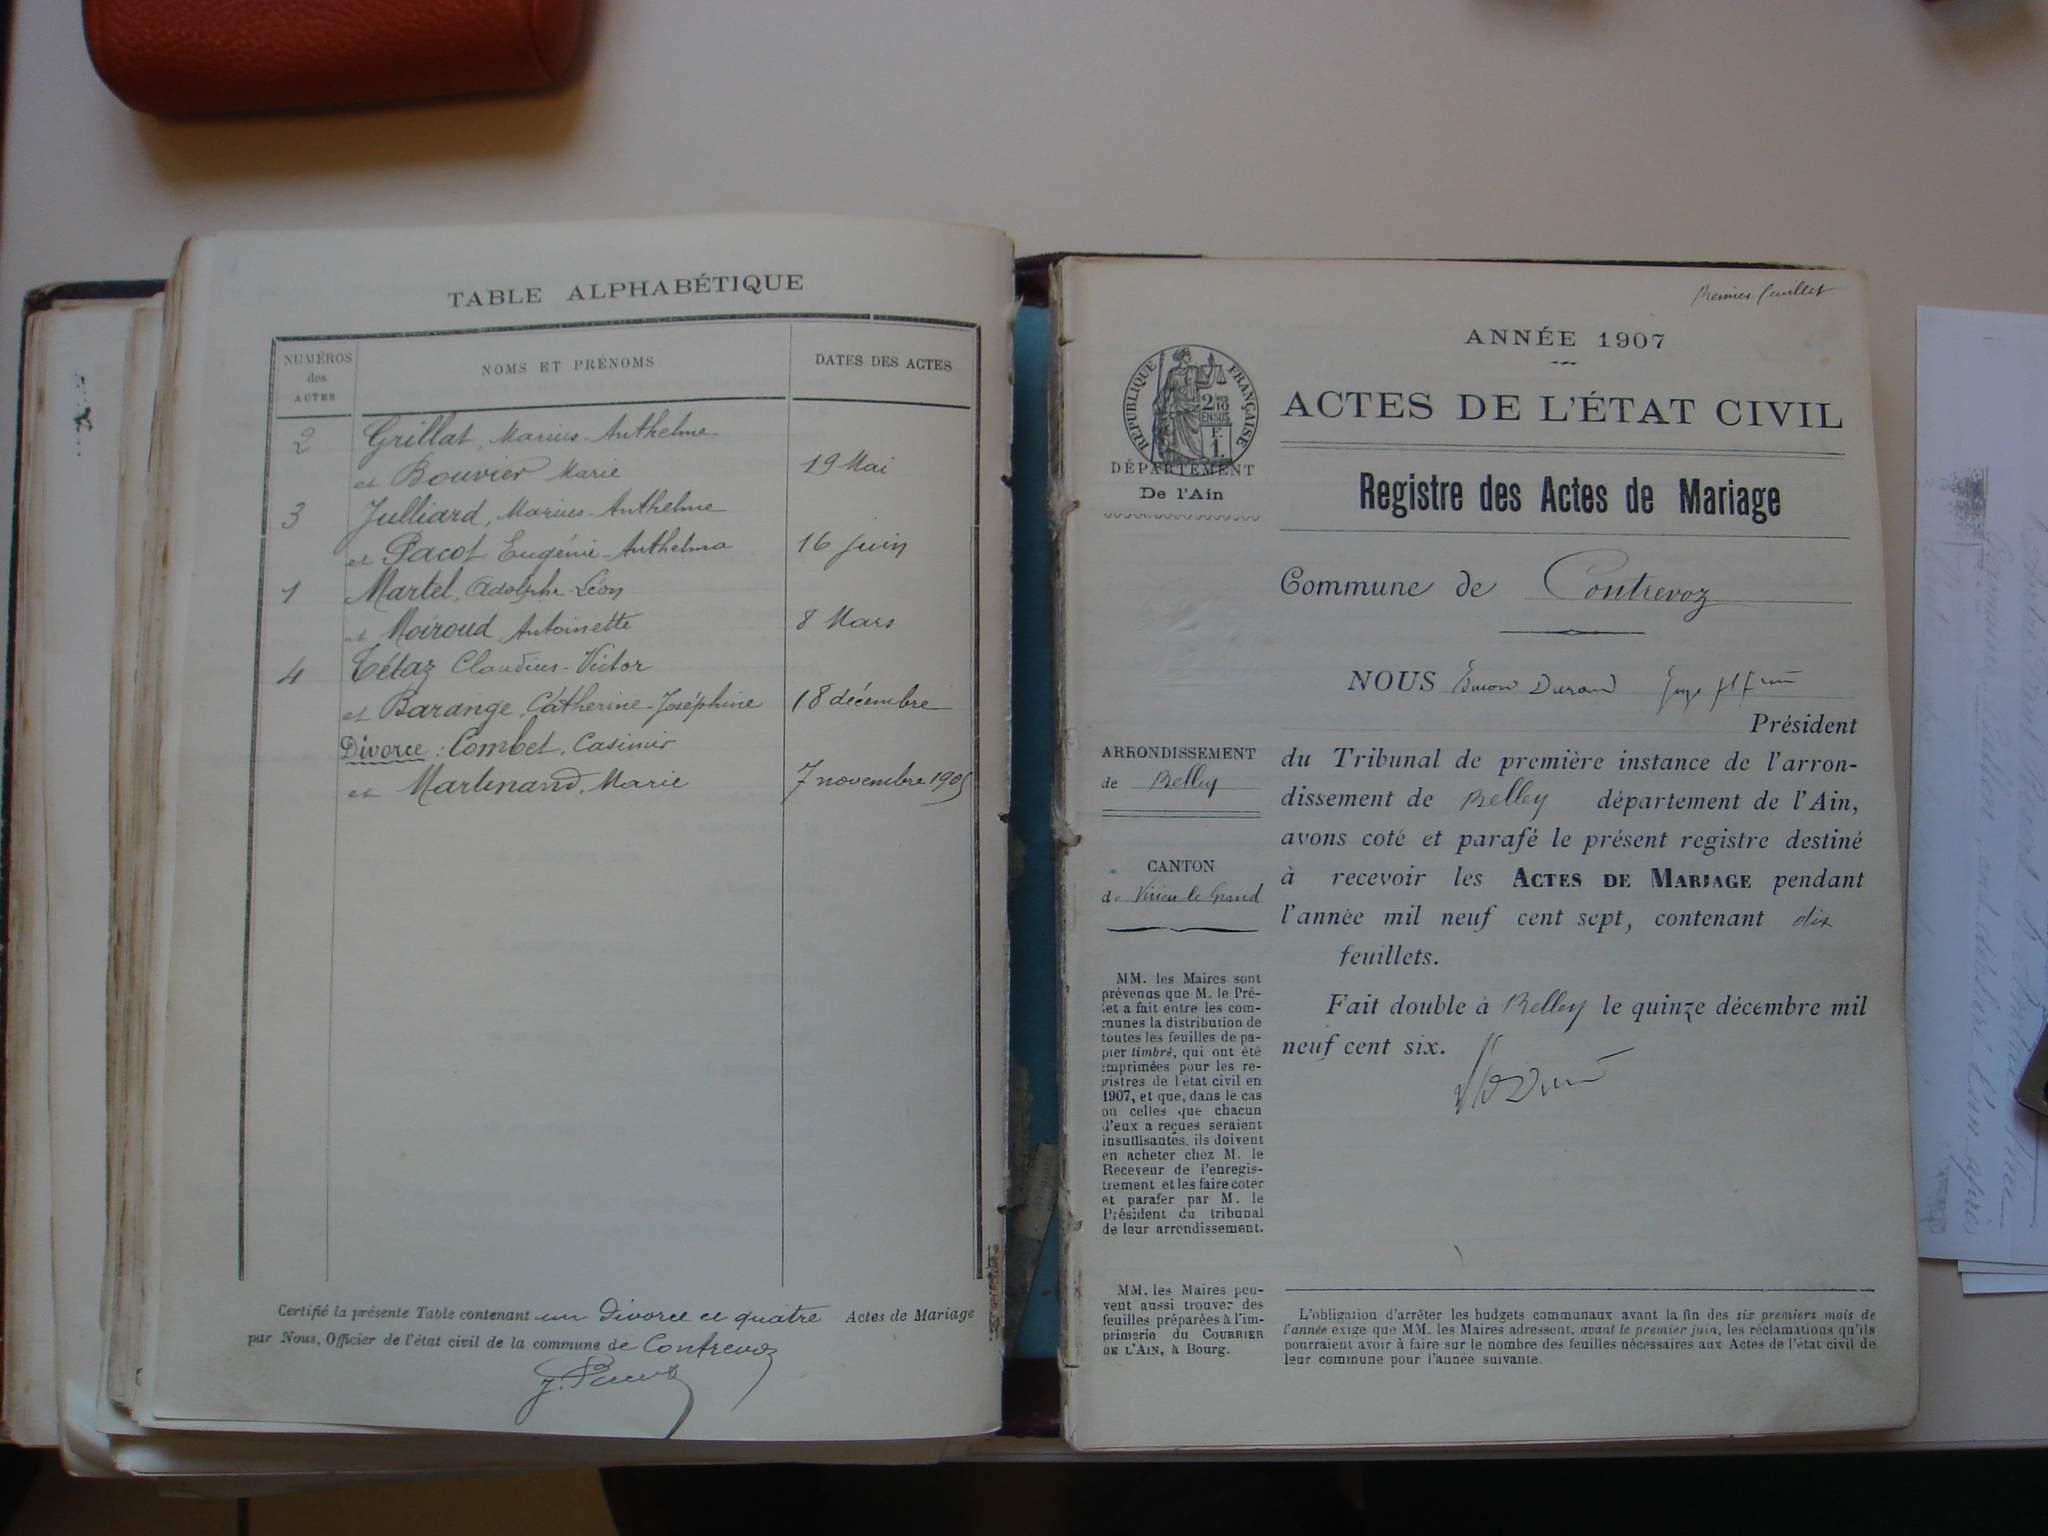 TABLE ALPHABÉTIQUE
NUMÉROS
des
ACTES
NOMS ET PRÉNOMS
DATES DES ACTES
2 Grillat, Marius-Anthelme
et Bouvier Marie 19 Mai
3 Julliard, Marius-Anthelme
et Pacot Eugénie-Anthelma 16 juin
1 Martel, Adolphe-Léon
et Moiroud, Antoinette 8 Mars
4 Tétaz Claudius-Victor
et Barange, Catherine-Joséphine 18 décembre
Divorce : Combet, Casimir
et Martinand, Marie 7 novembre 1905
Certifié la présente Table contenant un Divorce et quatre Actes de Mariage
par Nous, Officier de l'état civil de la commune de Contrevoz
Premier feuillet
ANNÉE 1907
RÉPUBLIQUE FRANÇAISE
2/10
EN SUS
F.
1.
ACTES DE L'ÉTAT CIVIL
DÉPARTEMENT
De l'Ain
Registre des Actes de Mariage
Commune de Contrevoz
NOUS Durand
Président
du Tribunal de première instance de l'arron-
dissement de Belley département de l'Ain,
avons coté et parafé le présent registre destiné
à recevoir les ACTES DE MARIAGE pendant
l'année mil neuf cent sept, contenant dix
feuillets.
Fait double à Belley le quinze décembre mil
neuf cent six.
ARRONDISSEMENT
de Belley
CANTON
de Virieu le Grand
MM. les Maires sont
prévenus que M. le Pré-
fet a fait entre les com-
munes la distribution de
toutes les feuilles de pa-
pier timbré, qui ont été
imprimées pour les re-
gistres de l'état civil en
1907, et que, dans le cas
où celles que chacun
d'eux a reçues seraient
insuffisantes, ils doivent
en acheter chez M. le
Receveur de l'enregis-
trement et les faire coter
et parafer par M. le
Président du tribunal
de leur arrondissement.
MM. les Maires peu-
vent aussi trouver des
feuilles préparées à l'im-
primerie du COURRIER
DE L'AIN, à Bourg.
L'obligation d'arrêter les budgets communaux avant la fin des six premiers mois de
l'année exige que MM. les Maires adressent, avant le premier juin, les réclamations qu'ils
pourraient avoir à faire sur le nombre des feuilles nécessaires aux Actes de l'état civil de
leur commune pour l'année suivante.